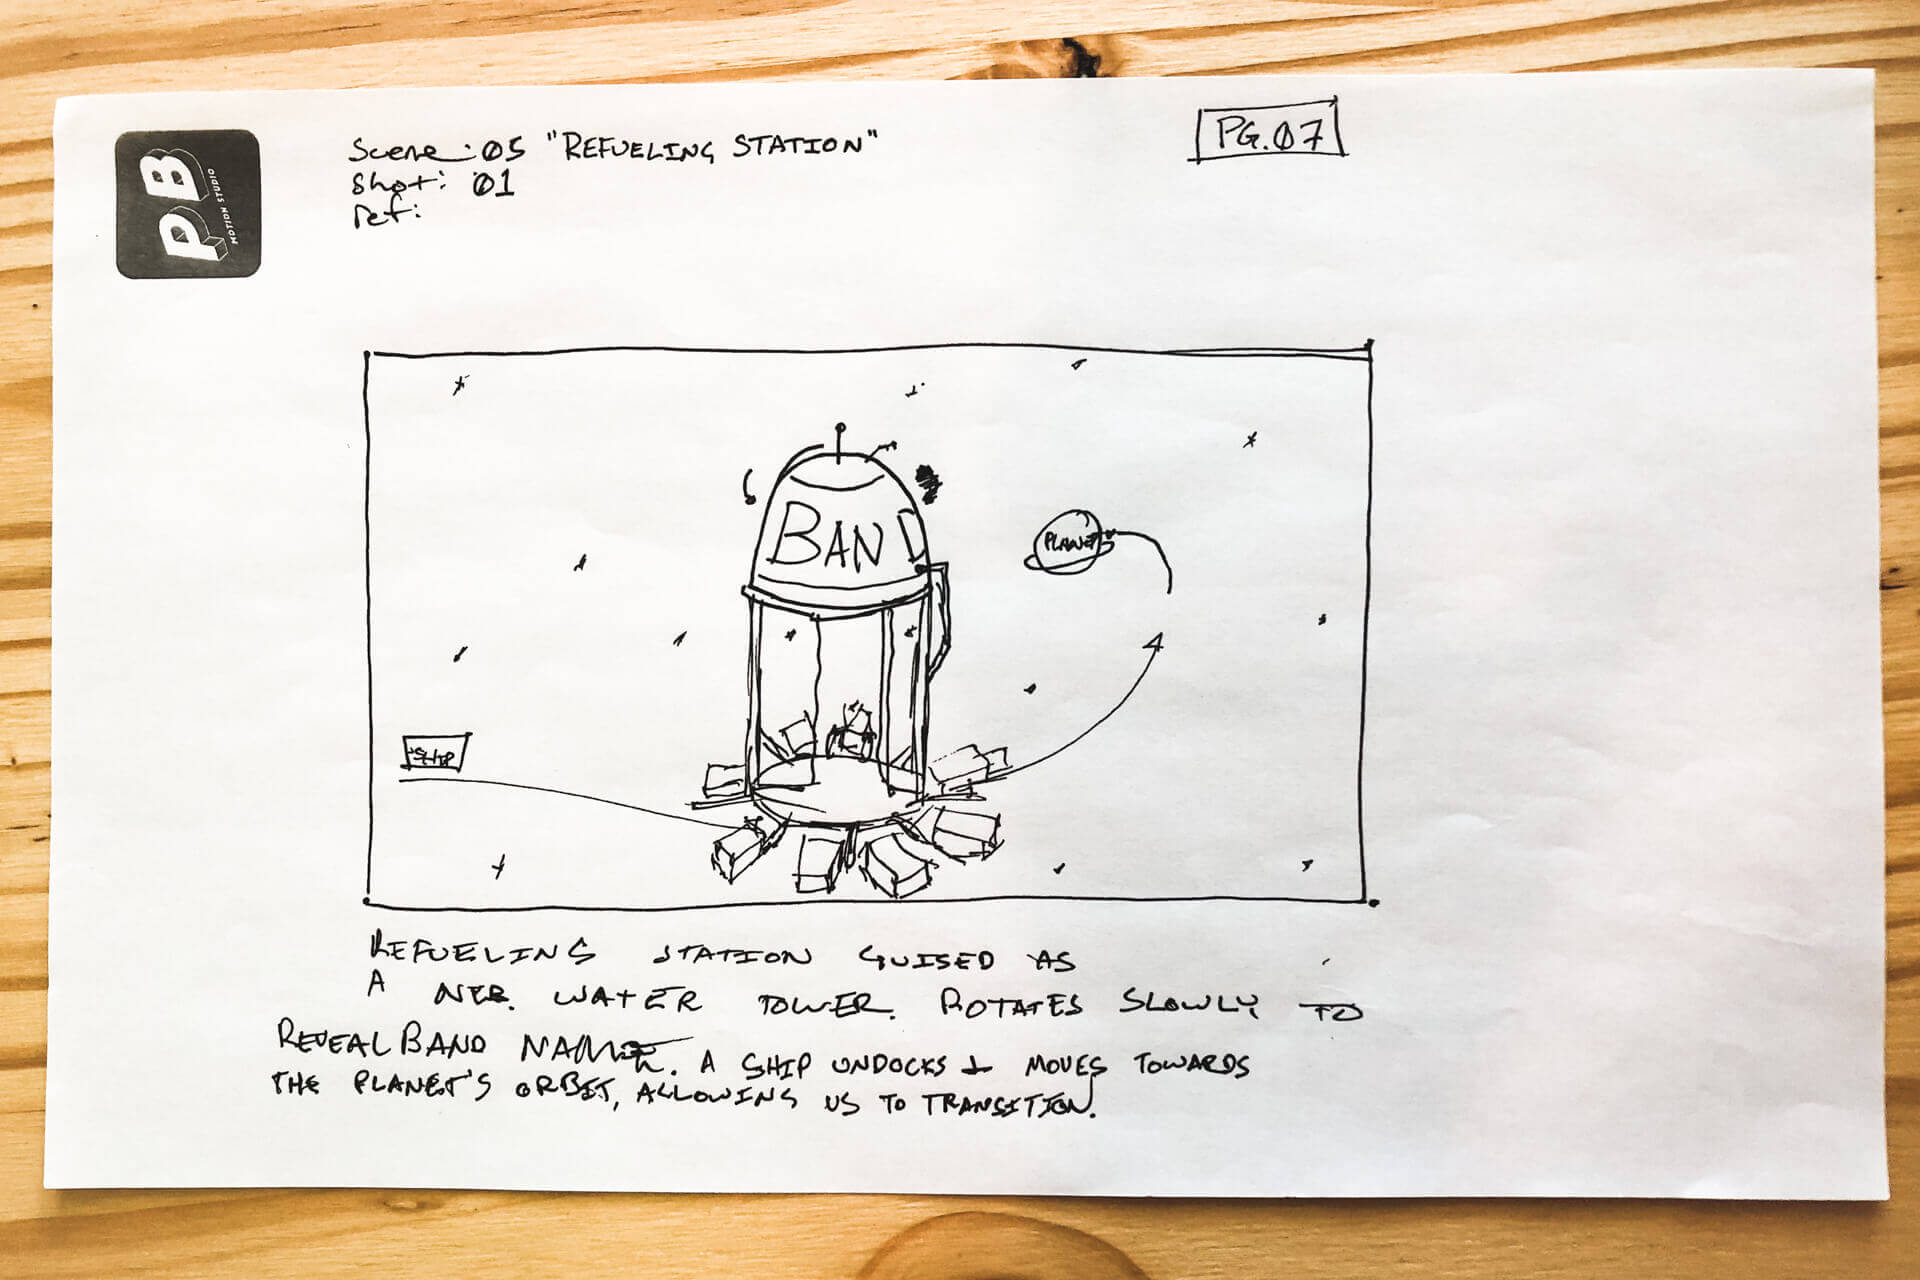 PB
MOTION STUDIO
Scene: 05 "REFUELING STATION"
Shot: 01
ref:
PG.07
BAN
PLANET
SHIP
REFUELING STATION GUISED AS
A WATER TOWER. ROTATES SLOWLY TO
REVEAL BAND NAME. A SHIP UNDOCKS & MOVES TOWARDS
THE PLANET'S ORBIT, ALLOWING US TO TRANSITION.